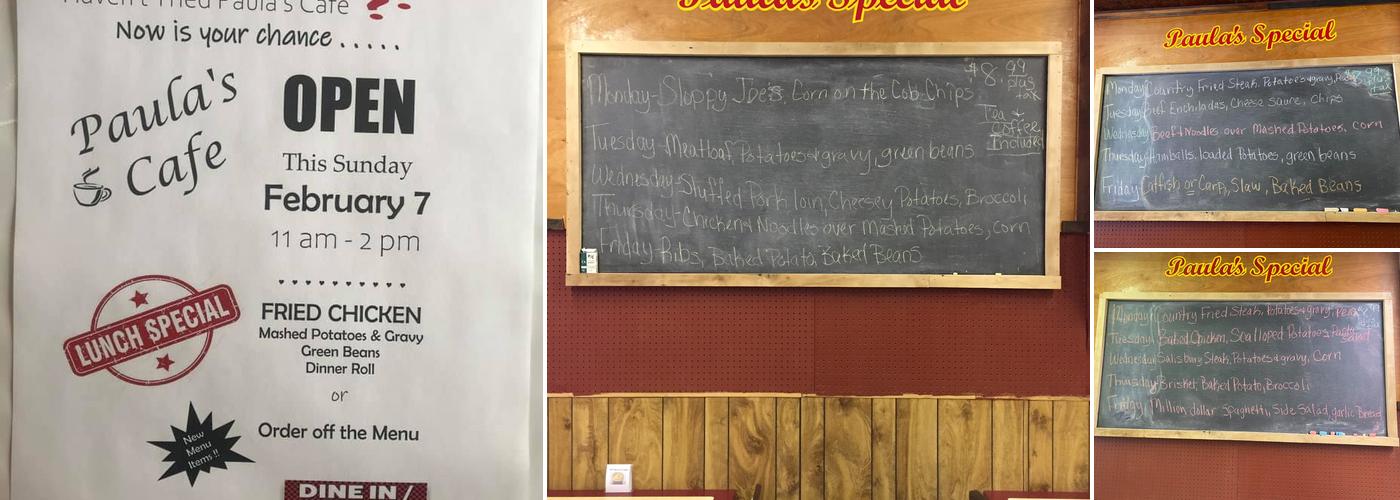 Haven't Tried Paula's Cafe ??
Now is your chance . . . . .
Paula's
Cafe
OPEN
This Sunday
February 7
11 am - 2 pm
LUNCH SPECIAL
FRIED CHICKEN
Mashed Potatoes & Gravy
Green Beans
Dinner Roll
or
Order off the Menu
New
Menu
Items !!
DINE IN /
Paula's Special
$8.99
plus
tax
Monday-Sloppy Joe's, Corn on the Cob, Chips
Tea &
Coffee
Included
Tuesday-Meatloaf, Potatoes & gravy, green beans
Wednesday-Stuffed Pork loin, Cheesey Potatoes, Broccoli
Thursday-Chicken & Noodles over Mashed Potatoes, corn
Friday-Ribs, Baked Potato, Baked Beans
Paula's Special
Monday Country Fried Steak, Potatoes & gravy, Peas
$8.99
plus
tax
Tuesday Beef Enchiladas, Cheese Sauce, Chips
Wednesday Beef & Noodles over Mashed Potatoes, corn
Thursday Hamballs, loaded Potatoes, green beans
Friday Catfish or Carp, Slaw, Baked Beans
Paula's Special
Monday Country Fried Steak, Potatoes & gravy, Peas
Tuesday Baked Chicken, Scalloped Potatoes, Pasta
Salad
Wednesday Salisbury Steak, Potatoes & gravy, Corn
Thursday Brisket, Baked Potato, Broccoli
Friday Million dollar Spaghetti, Side Salad, garlic Bread